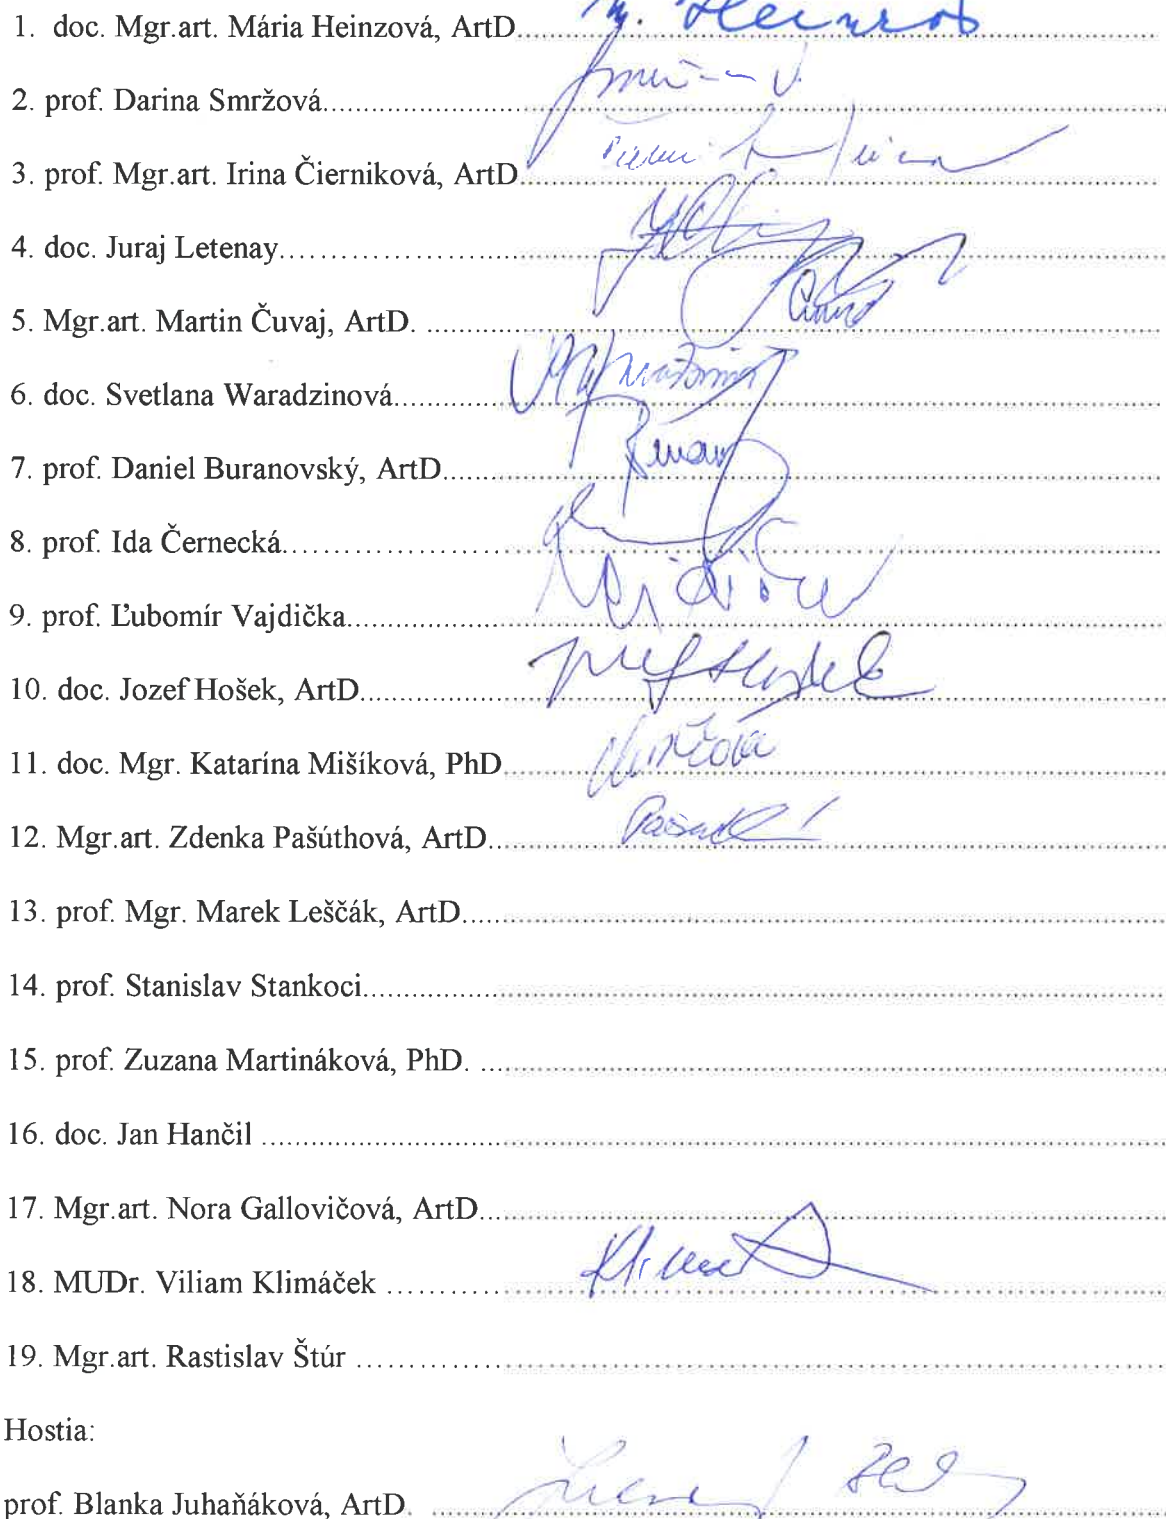 1. doc. Mgr.art. Mária Heinzová, ArtD. M. Heinzová
2. prof. Darina Smržová
3. prof. Mgr.art. Irina Čierniková, ArtD
4. doc. Juraj Letenay
5. Mgr.art. Martin Čuvaj, ArtD.
6. doc. Svetlana Waradzinová
7. prof. Daniel Buranovský, ArtD
8. prof. Ida Černecká
9. prof. Ľubomír Vajdička
10. doc. Jozef Hošek, ArtD
11. doc. Mgr. Katarína Mišíková, PhD
12. Mgr.art. Zdenka Pašúthová, ArtD
13. prof. Mgr. Marek Leščák, ArtD
14. prof. Stanislav Stankoci
15. prof. Zuzana Martináková, PhD.
16. doc. Jan Hančil
17. Mgr.art. Nora Gallovičová, ArtD
18. MUDr. Viliam Klimáček
19. Mgr.art. Rastislav Štúr
Hostia:
prof. Blanka Juhaňáková, ArtD.